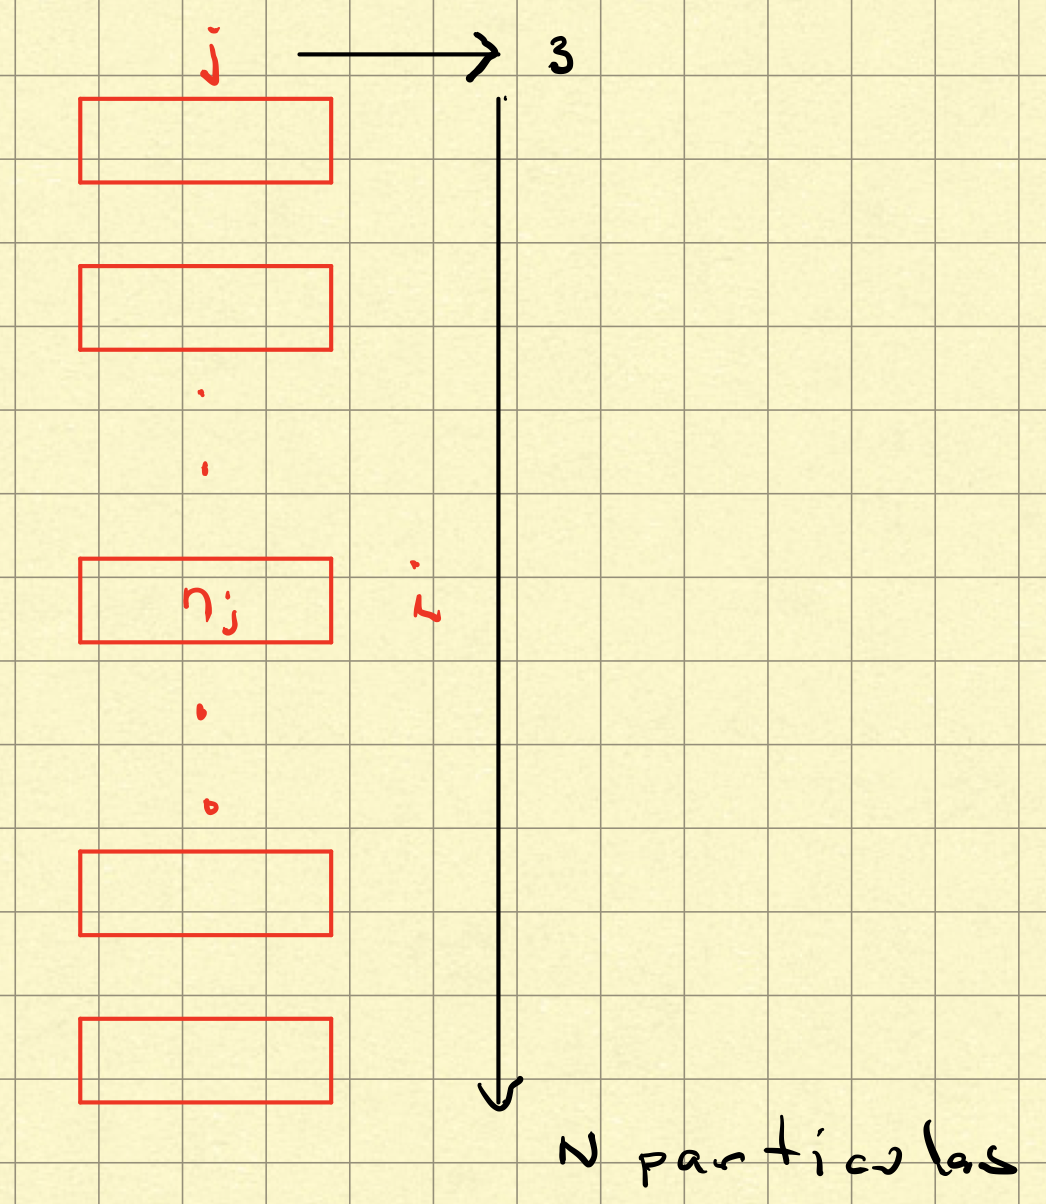 j 3
nj i
N particulas